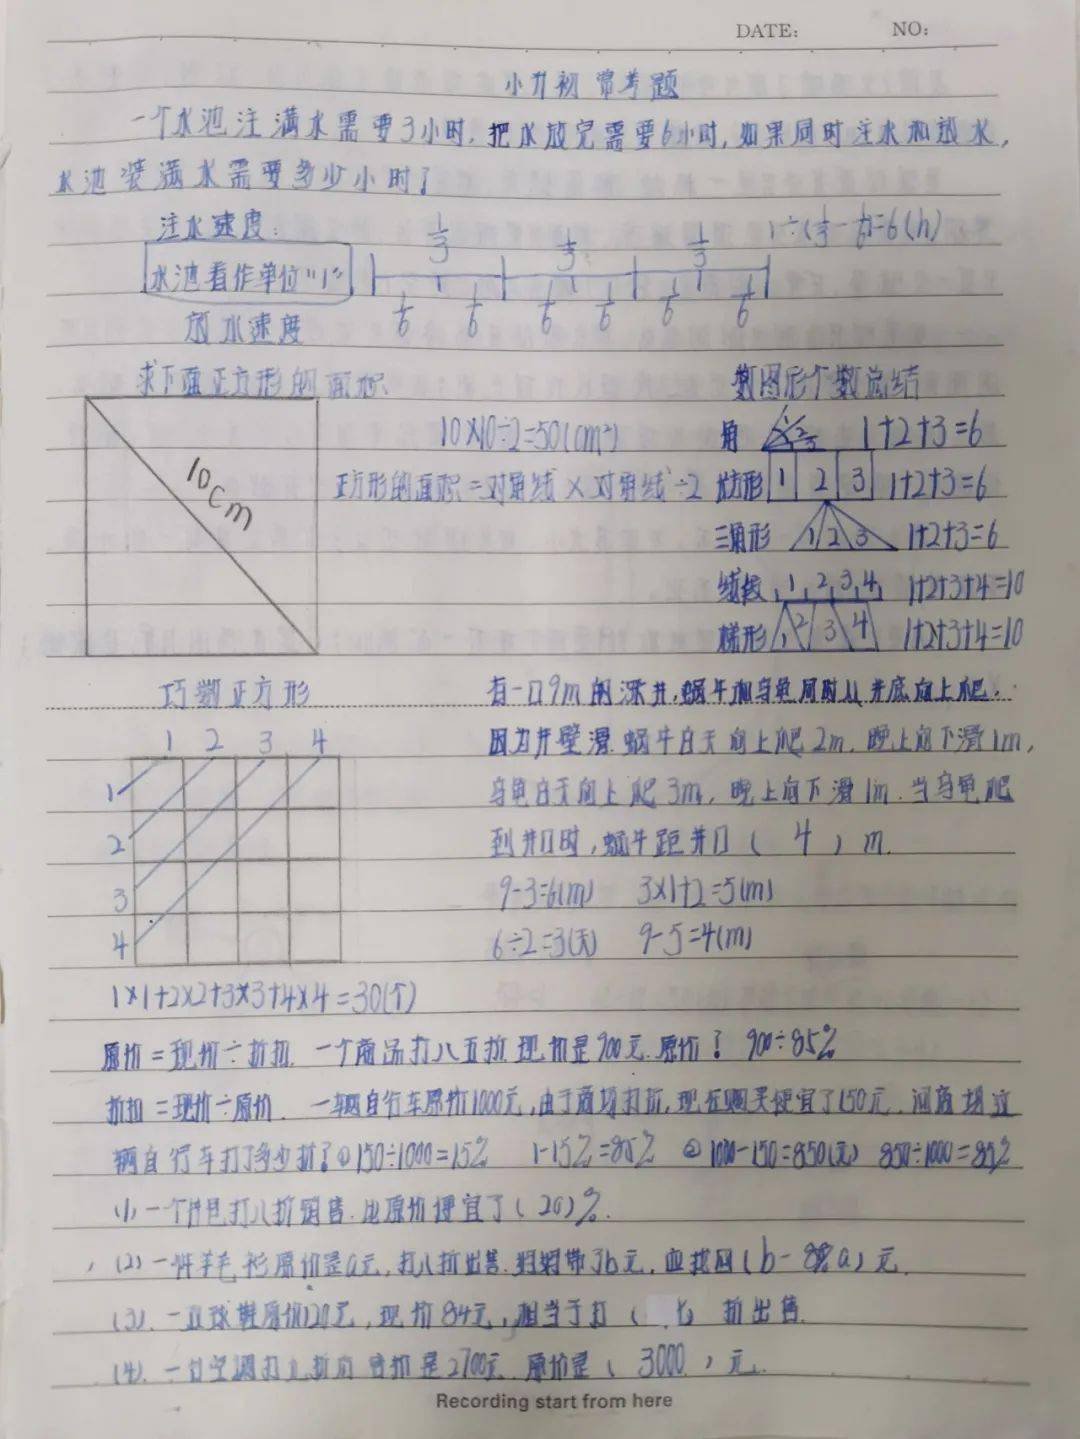 DATE: NO:
小升初 常考题
一个水池注满水需要3小时,把水放完需要6小时,如果同时注水和放水,
水池装满水需要多少小时?
注水速度: 1/3 1/3 1/3 1÷(1/3-1/6)=6(h)
水池看作单位"1"
1/6 1/6 1/6 1/6 1/6 1/6
放水速度
求下面正方形的面积 数图形个数总结
10cm
10×10÷2=50(cm²) 角 1 2 3 1+2+3=6
正方形的面积=对角线×对角线÷2 方形 1 2 3 1+2+3=6
三角形 1 2 3 1+2+3=6
线段 1 2 3 4 1+2+3+4=10
梯形 1 2 3 4 1+2+3+4=10
巧数正方形
1 2 3 4
1
2
3
4
1×1+2×2+3×3+4×4=30(个)
有一口9m的深井,蜗牛和乌龟同时从井底向上爬.
因为井壁滑.蜗牛白天向上爬2m,晚上向下滑1m,
乌龟白天向上爬3m,晚上向下滑1m.当乌龟爬
到井口时,蜗牛距井口( 4 )m.
9-3=6(m) 3×1+2=5(m)
6÷2=3(天) 9-5=4(m)
原价=现价÷折扣. 一个商品打八五折现价是900元.原价? 900÷85%
折扣=现价÷原价. 一辆自行车原价1000元,由于商场打折,现在购买便宜了150元.问商场这
辆自行车打了多少折?①150÷1000=15% 1-15%=85% ②1000-150=850(元) 850÷1000=85%
(1)一个打八折销售.比原价便宜了(20)%.
(2)一件羊毛衫原价是a元,打八折出售.妈妈带了b元,应找回(b-8%a)元.
(3).一双球鞋原价120元,现价84元,相当于打( 七)折出售.
(4).一台空调打九折后售价是2700元.原价是(3000)元.
Recording start from here